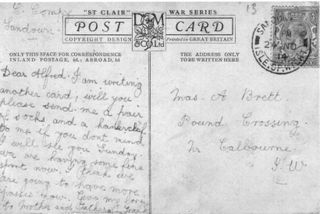 C. Coombe
Sandown
"ST CLAIR" WAR SERIES
POST CARD
COPYRIGHT DESIGN Printed in GREAT BRITAIN
ONLY THIS SPACE FOR CORRESPONDENCE
INLAND POSTAGE, ABROAD,
THE ADDRESS ONLY
TO BE WRITTEN HERE
13
Dear Alfred. I am writing
another card, will you
please send me a pair
of socks and a
to me if you dont mind
I will see you Sunday.
we are having some fine
now. I think we
are going to have more
Give my love
to Mother and
Mrs A Brett
Pound Crossing
Nr Calbourne
I W